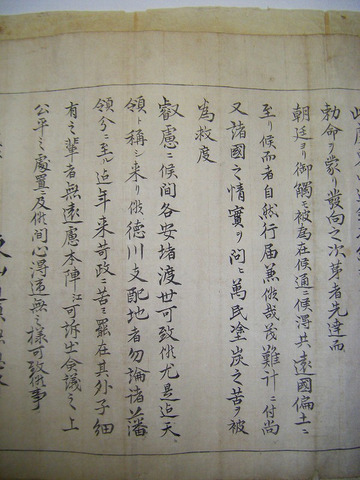 勅命ヲ蒙リ發向之次第者先達而
朝廷ヨリ御觸モ被為在候通ニ候得共遠國偏土ニ
至リ候而者自然行届兼候哉茂難計ニ付尚
又諸國之情實ヲ問ヒ萬民塗炭之苦ヲ被
為救度
叡慮ニ候間各安堵渡世可致候尤是迄天
領ト稱シ来リ候徳川支配地者勿論諸藩
領分ニ至ル迄年来苛政ニ苦ミ罷在其外子細
有之輩者無遠慮本陣江可訴出會議之上
公平之處置ニ及候間心得違無之様可致候事